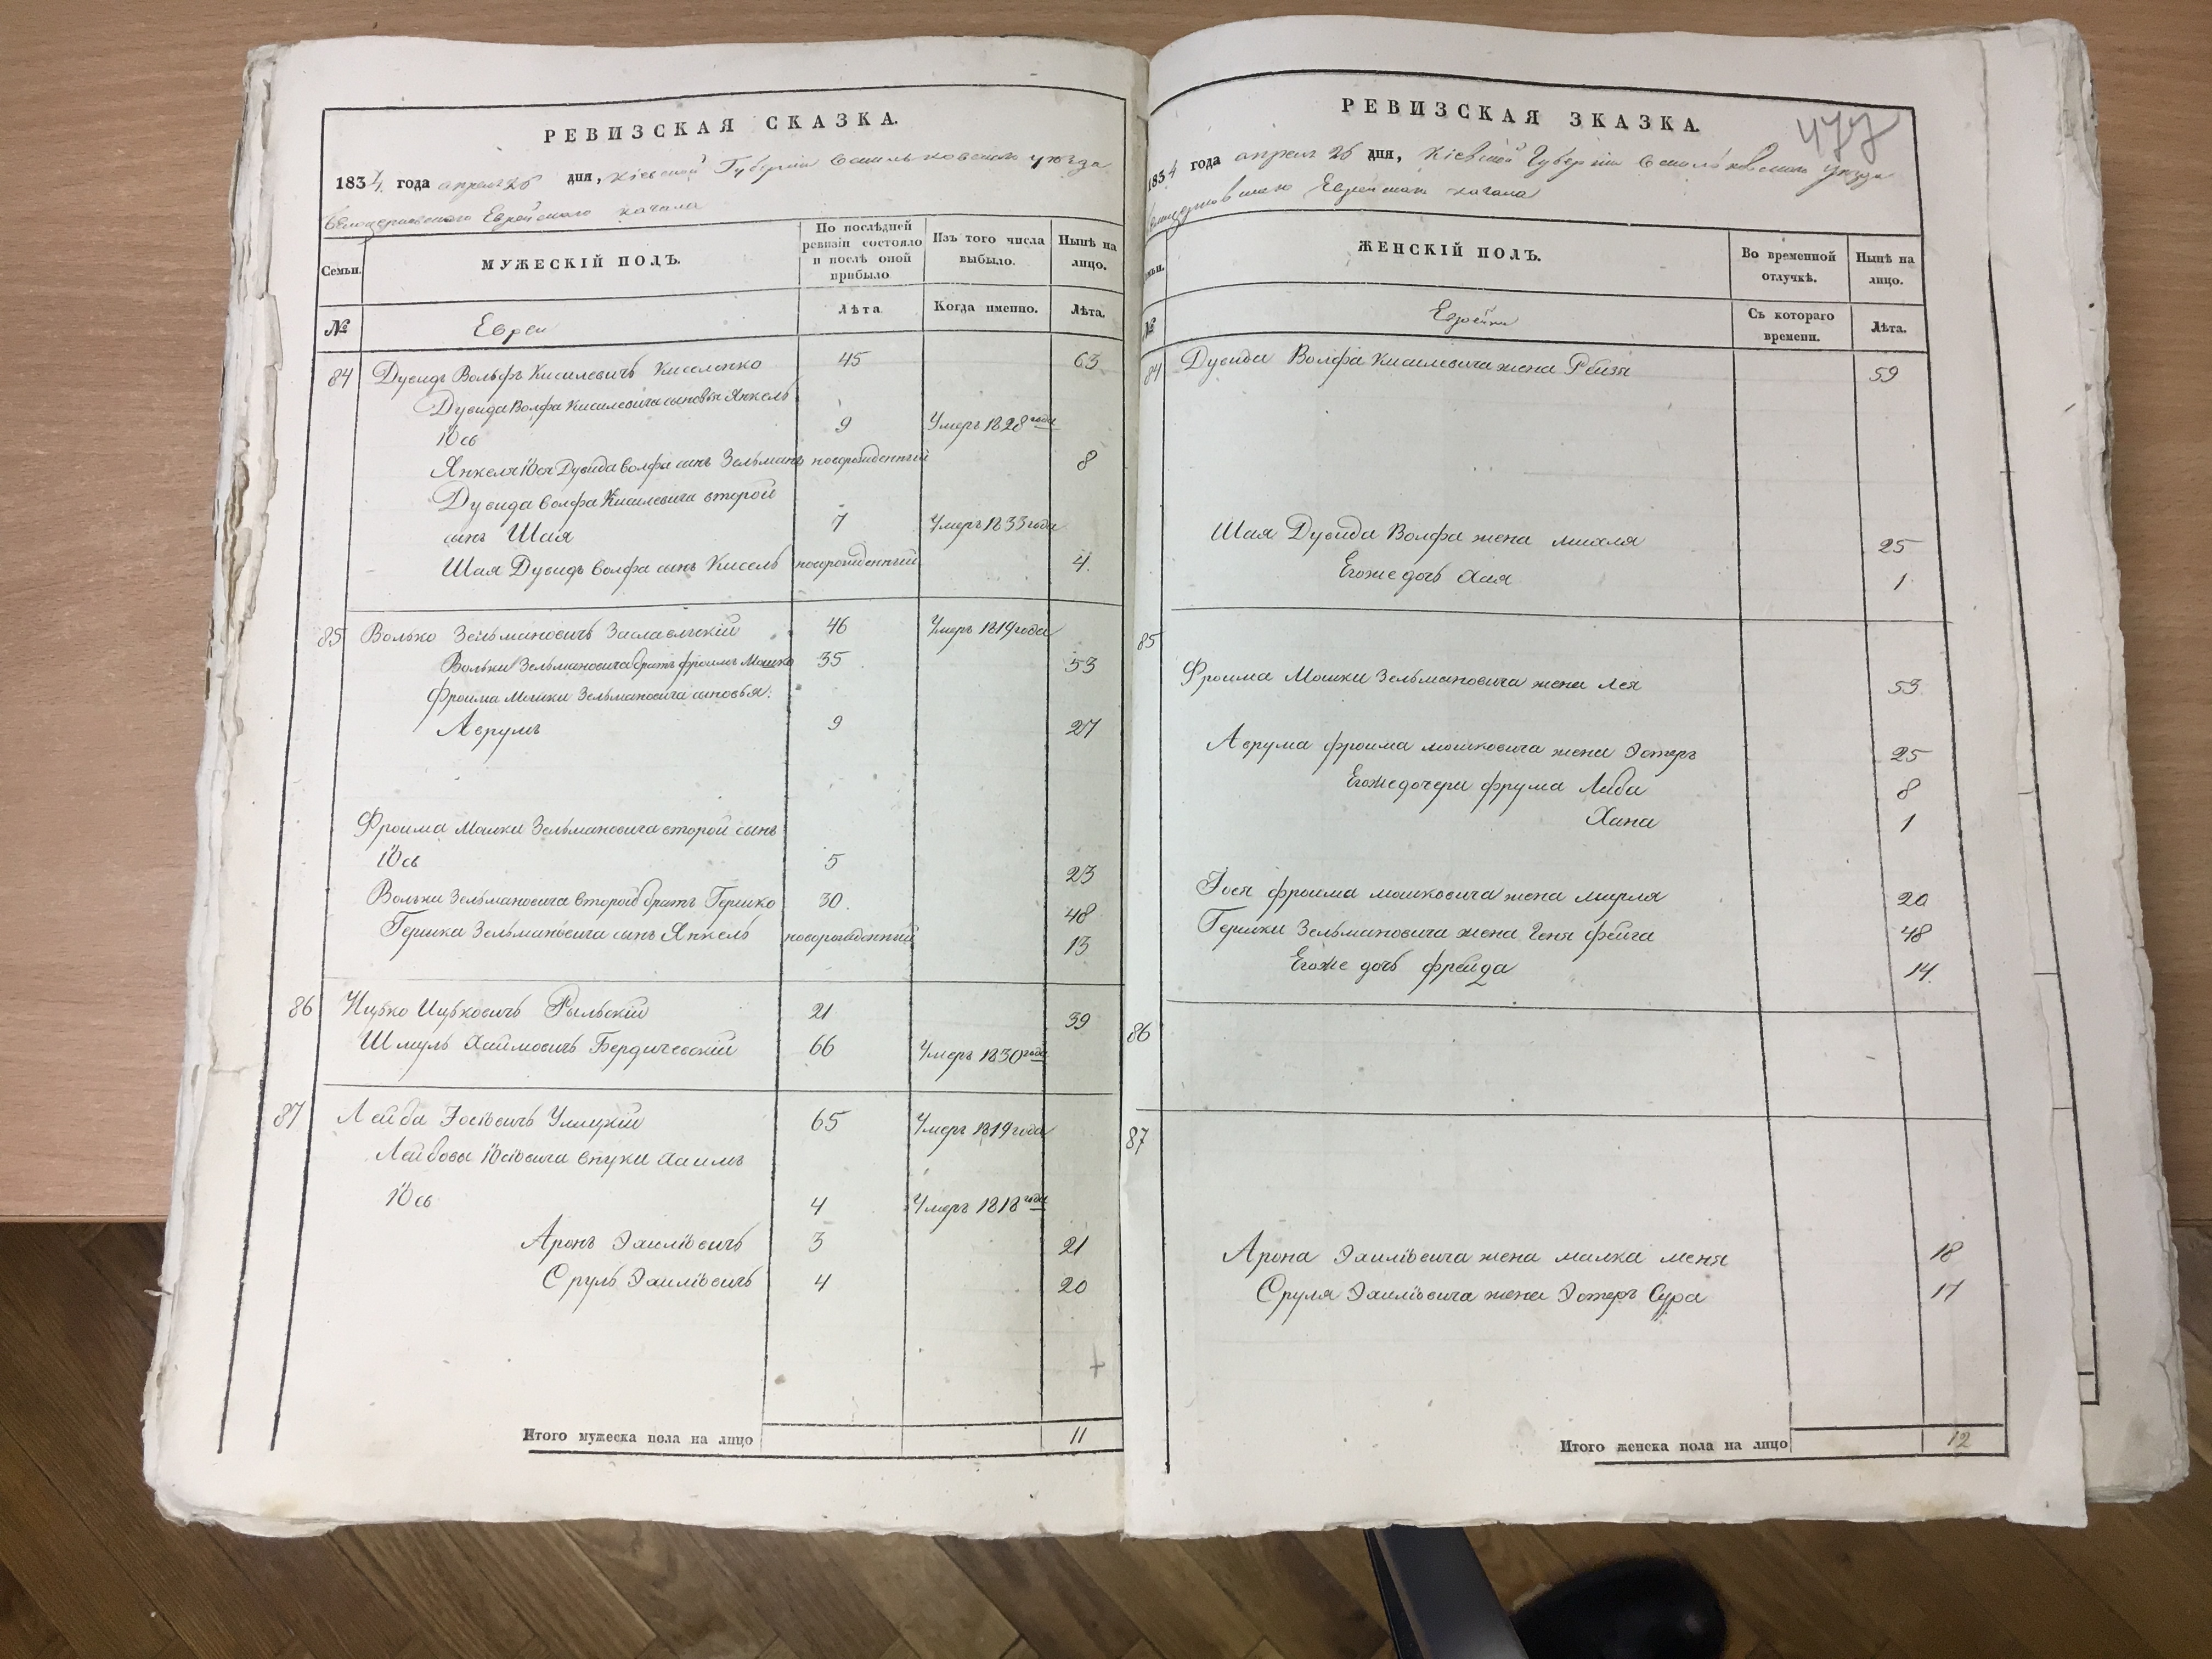 РЕВИЗСКАЯ СКАЗКА.
1834 года апреля 26 дня, Кіевской Губерніи Васильковскаго уезда
Белоцерковскаго Еврейскаго кагала
Семьи.
МУЖЕСКІЙ ПОЛЪ.
По послѣдней ревизіи состояло и послѣ оной прибыло
Изъ того числа выбыло.
Нынѣ на лицо.
№
Евреи
Лѣта
Когда именно.
Лѣта.
84 Дувидъ Вольфъ Кисилевичъ Киселенко 45 63
Дувида Волфа Кисилевича сыновья Янкель
Іось 9 Умеръ 1828 года
Янкеля Іося Дувида Волфа сынъ Зельманъ новорожденный 8
Дувида Волфа Кисилевича второй
сынъ Шая 7 Умеръ 1833 года
Шая Дувидъ Волфа сынъ Кисель новорожденный 4.
85 Волько Зельмановичъ Заславскій 46 Умеръ 1819 года
Вольки Зельмановича братъ Фроимъ Мошко 35 53
Фроима Мошки Зельмановича сыновья:
Аврумъ 9 27
Фроима Мошки Зельмановича второй сынъ
Іось 5 23
Вольки Зельмановича второй братъ Гершко 30. 48
Гершка Зельмановича сынъ Янкель новорожденный 13
86 Ицько Ицьковичъ Рыльскій 21 39
Шмуль Хаимовичъ Бердичевскій 66 Умеръ 1830 года
87 Лейба Іосіовичъ 65 Умеръ 1819 года
Лейбовы Іосіовича внуки Хаимъ
Іось 4 Умеръ 1818 года
Аронъ Эхиліовичъ 3 21
Сруль Эхиліовичъ 4 20
Итого мужеска пола на лицо 11
477
РЕВИЗСКАЯ ЗКАЗКА.
1834 года апреля 26 дня, Кіевской Губерніи Васильковскаго уезда
Еврейскаго кагала
ЖЕНСКІЙ ПОЛЪ.
Во временной отлучкѣ.
Нынѣ на лицо.
№
Еврейки
Съ котораго времени.
Лѣта.
84 Дувида Волфа Кисилевича жена Рейзя 59
Шая Дувида Волфа жена Михля 25
Егоже дочь Хая 1
85
Фроима Мошки Зельмановича жена Лея 53.
Аврума Фроима Мошковича жена Эстеръ 25
Егоже дочери Фрума Либа 8
Хана 1
Іося Фроима Мошковича жена Мирля 20
Гершки Зельмановича жена Геня Фейга 48
Егоже дочь Фрейда 14.
86
87
Арона Эхиліовича жена Малка Меня 18
Сруля Эхиліовича жена Эстеръ Сура 17
Итого женска пола на лицо 12